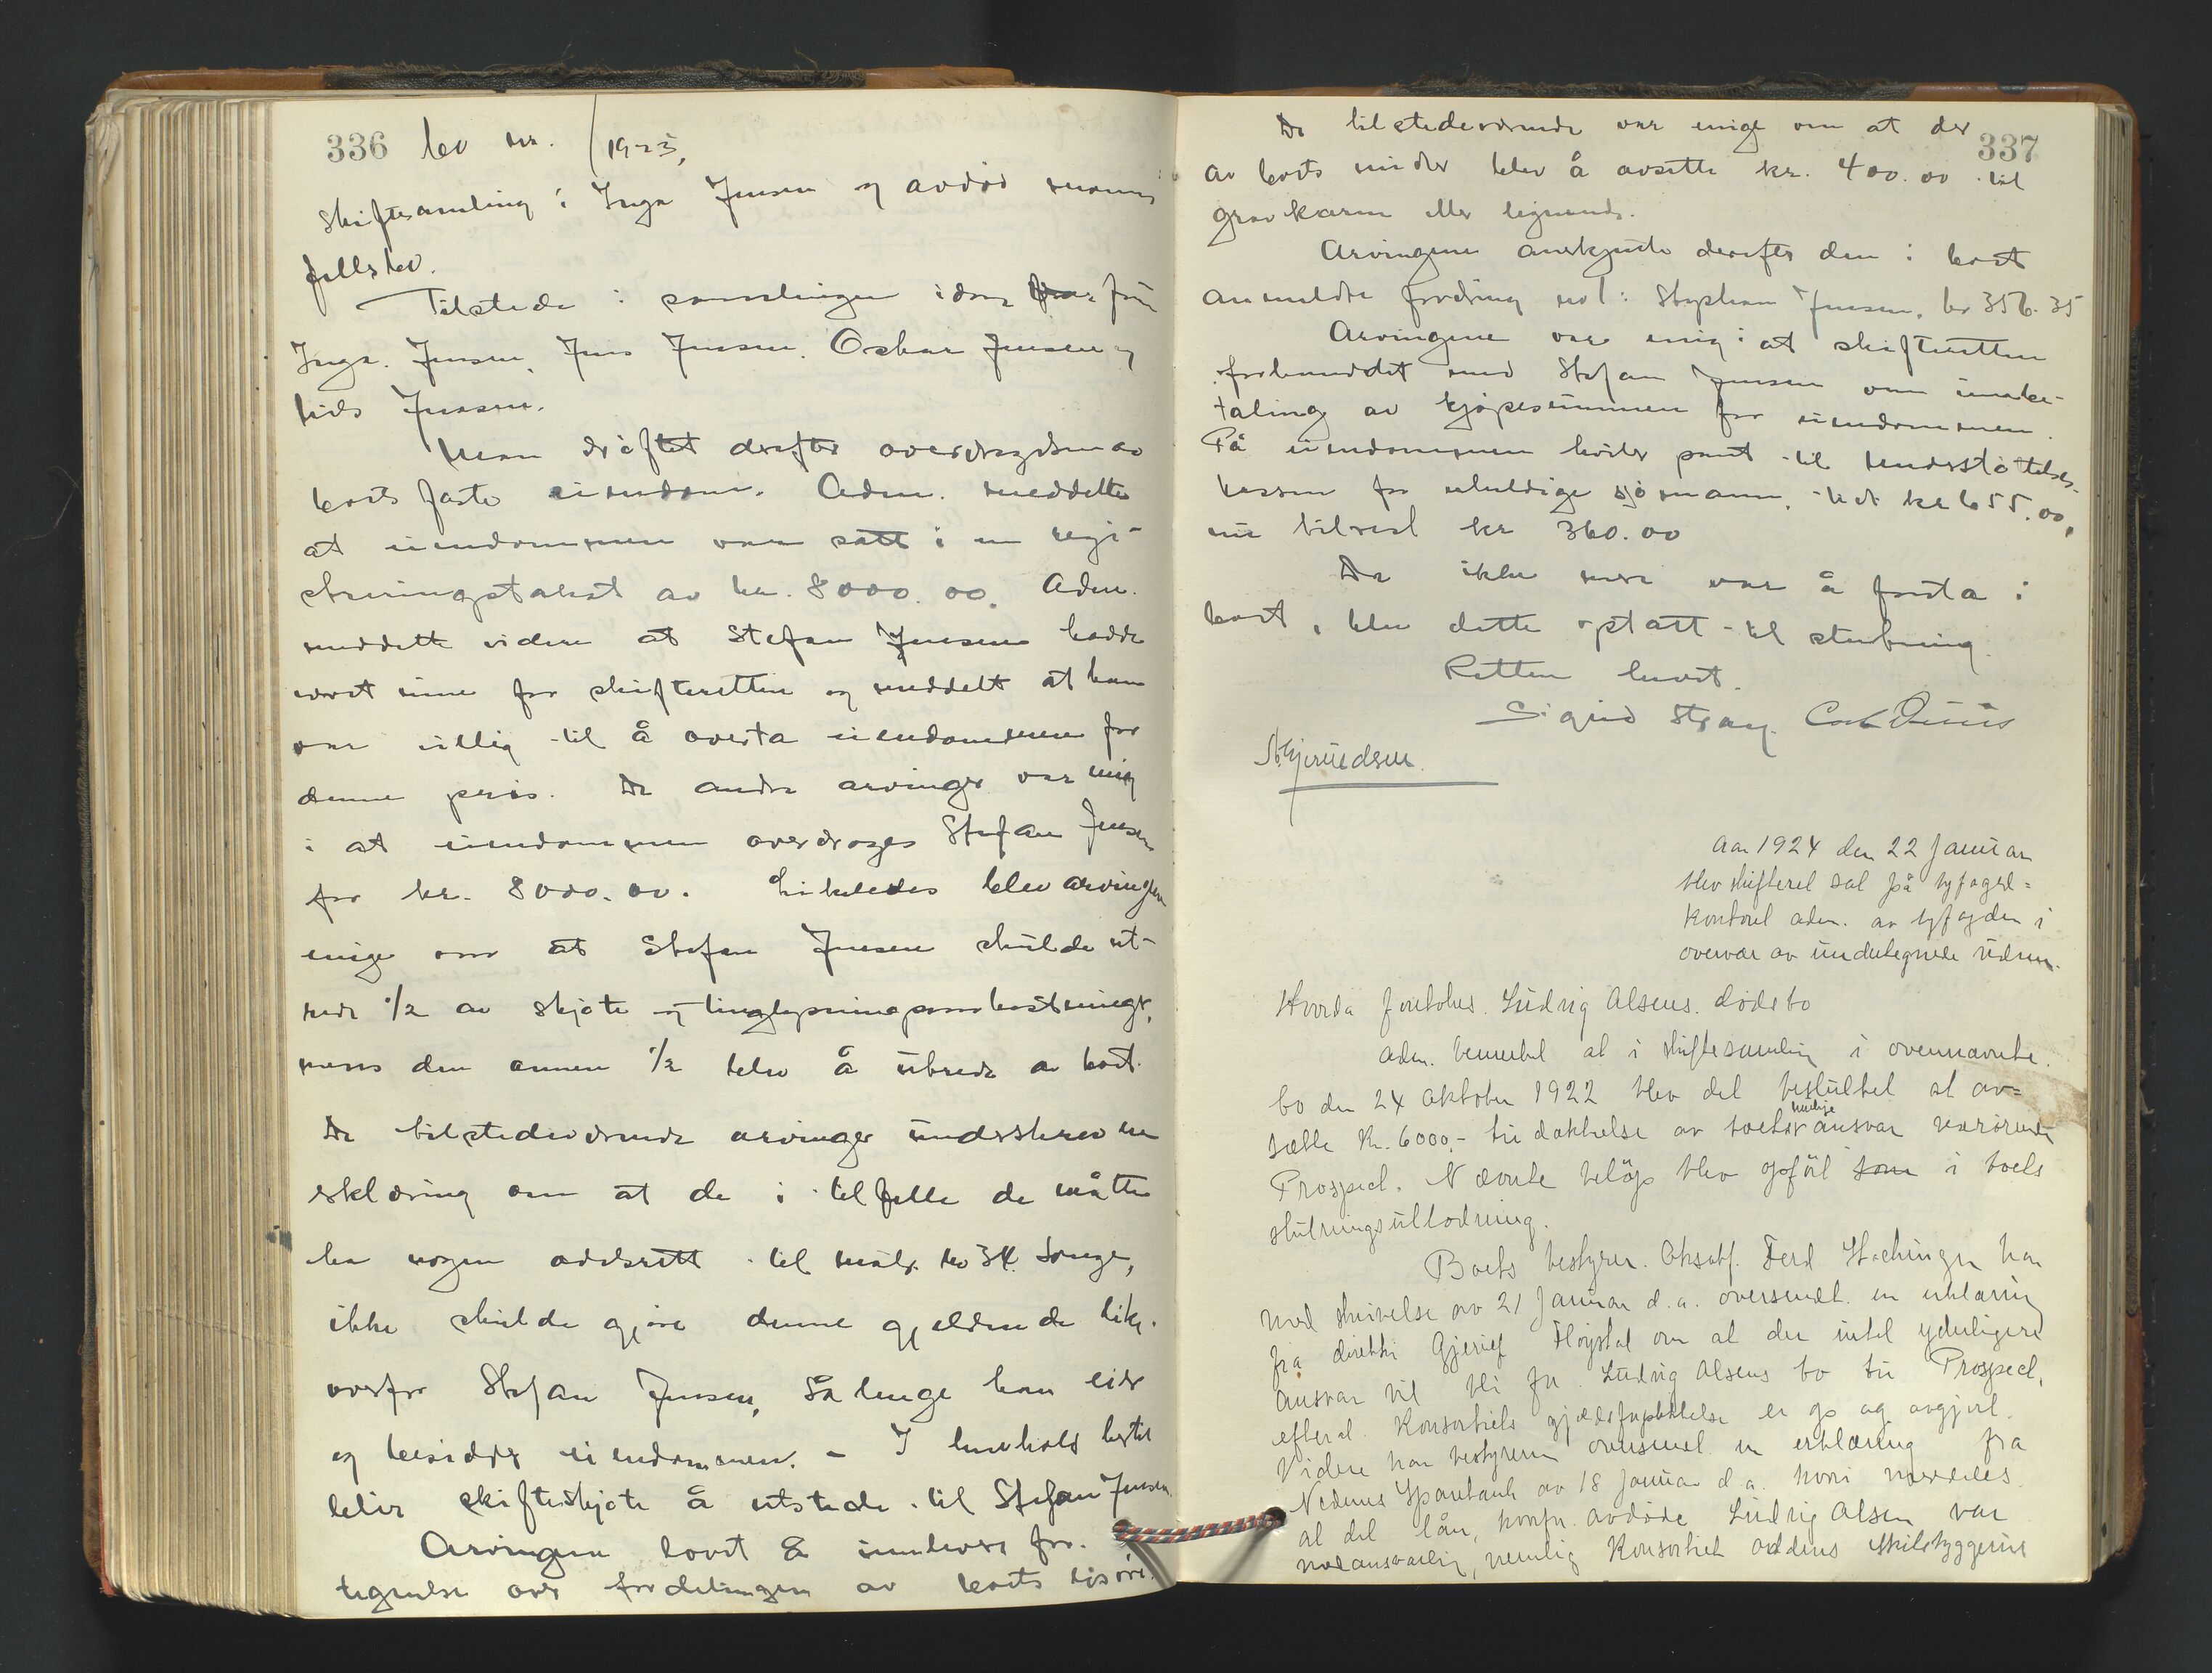 336 bo nr. /1923,
Skiftesamling i Inga Jensen og avdød manns
fellesbo.
Tilstede i samlingen idag fru
Inga Jensen, Jens Jensen, Oskar Jensen og
Nils Jensen.
Man drøftet derefter overdragelsen av
boets faste eiendom. Adm. meddelte
at eiendommen var satt i en regi-
streringstakst av kr. 8000.00. Adm.
meddelte videre at Stefan Jensen hadde
vært inne for skifteretten og meddelt at han
var villig til å overta eiendommen for
denne pris. De andre arvinger var enig
i at eiendommen overdrages Stefan Jensen
for kr. 8000.00. Likeledes blev arvingene
enige om at Stefan Jensen skulde ut-
rede 1/2 av skjøte og tinglysningsomkostninger,
mens den annen 1/2 blev å utrede av boet.
De tilstedeværende arvinger underskrev en
erklæring om at de i tilfelle de måtte
ha nogen odelsrett til matr. no 34. Songe,
ikke skulde gjøre denne gjeldende like-
overfor Stefan Jensen, så lenge han eier
og besidder eiendommen. - I henhold hertil
blir skifteskjøte å utstede til Stefan Jensen.
Arvingene lovet å innlevere for-
tegnelse over fordelingen av boets løsøre.
337
De tilstedeværende var enige om at der
av boets midler blev å avsette kr. 400.00 til
gravkarm eller lignende.
Arvingene anerkjente derefter den i boet
anmeldte fordring no 1: Stephan Jensen, kr 356.35
Arvingene var enig i at skifteretten
forhandlet med Stefan Jensen om innbe-
taling av kjøpesummen for eiendommen.
På eiendommen hviler pant til Understøttelses-
kassen for uheldige sjømann, stort kr 655.00,
nu tilrest kr 360.00
Da ikke mere var å foreta i
boet, blev dette optatt til slutning.
Retten hevet.
Sigrid Stray. Carl Duus
Aar 1924 den 22 Januar
blev skifteret sat på byfoged=
kontoret adm. av byfogden i
overvær av undertegnede vidner.
Hvorda foretokes Ludvig Alsens dødsbo
Adm. bemerket at i skiftesamling i ovennævnte
bo den 24 Oktober 1922 blev det besluttet at av=
sætte Kr. 6000,- til dækkelse av boets mulige ansvar vedrørende
Prospect. Nævnte beløp blev opført som i boets
slutningsutlodning.
Boets bestyrer. Oksakf. Ferd Stachinger har
med skrivelse av 21 Januar d.a. oversendt en erklæring
fra direktør Gjerulf Fløystad om at der intet yderligere
ansvar vil bli for Ludvig Alsens bo til Prospect,
efterat Konsortiets gjældsforpliktelse er op og avgjort.
Videre har bestyreren oversendt en erklæring fra
Nedenes Sparebank av 18 Januar d.a. hvori meddeles
at det lån, hvorfor avdøde Ludvig Alsen var
medansvarlig, nemlig Konsortiet Oddens Skibsbyggeris